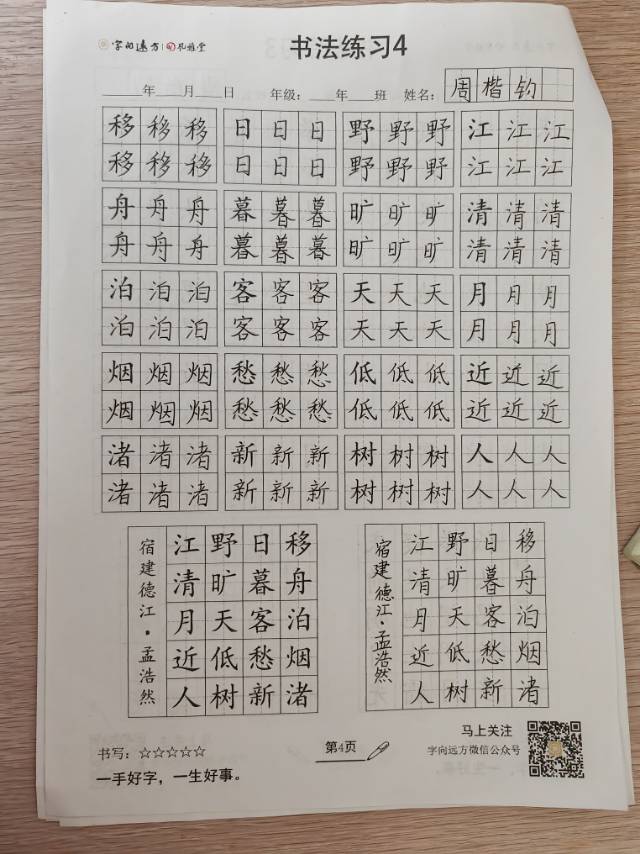 字向远方 孔雅堂
书法练习4
年 月 日 年级: 年 班 姓名: 周楷钧
移移移 日日日 野野野 江江江
移移移 日日日 野野野 江江江
舟舟舟 暮暮暮 旷旷旷 清清清
舟舟舟 暮暮暮 旷旷旷 清清清
泊泊泊 客客客 天天天 月月月
泊泊泊 客客客 天天天 月月月
烟烟烟 愁愁愁 低低低 近近近
烟烟烟 愁愁愁 低低低 近近近
渚渚渚 新新新 树树树 人人人
渚渚渚 新新新 树树树 人人人
移舟泊烟渚
日暮客愁新
野旷天低树
江清月近人
宿建德江·孟浩然
移舟泊烟渚
日暮客愁新
野旷天低树
江清月近人
宿建德江·孟浩然
书写: ☆☆☆☆☆
一手好字，一生好事。
第4页
马上关注
字向远方微信公众号